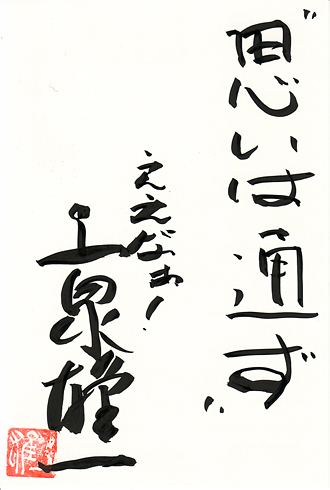 "思いは通ず"
ええなぁ!
上泉雄一